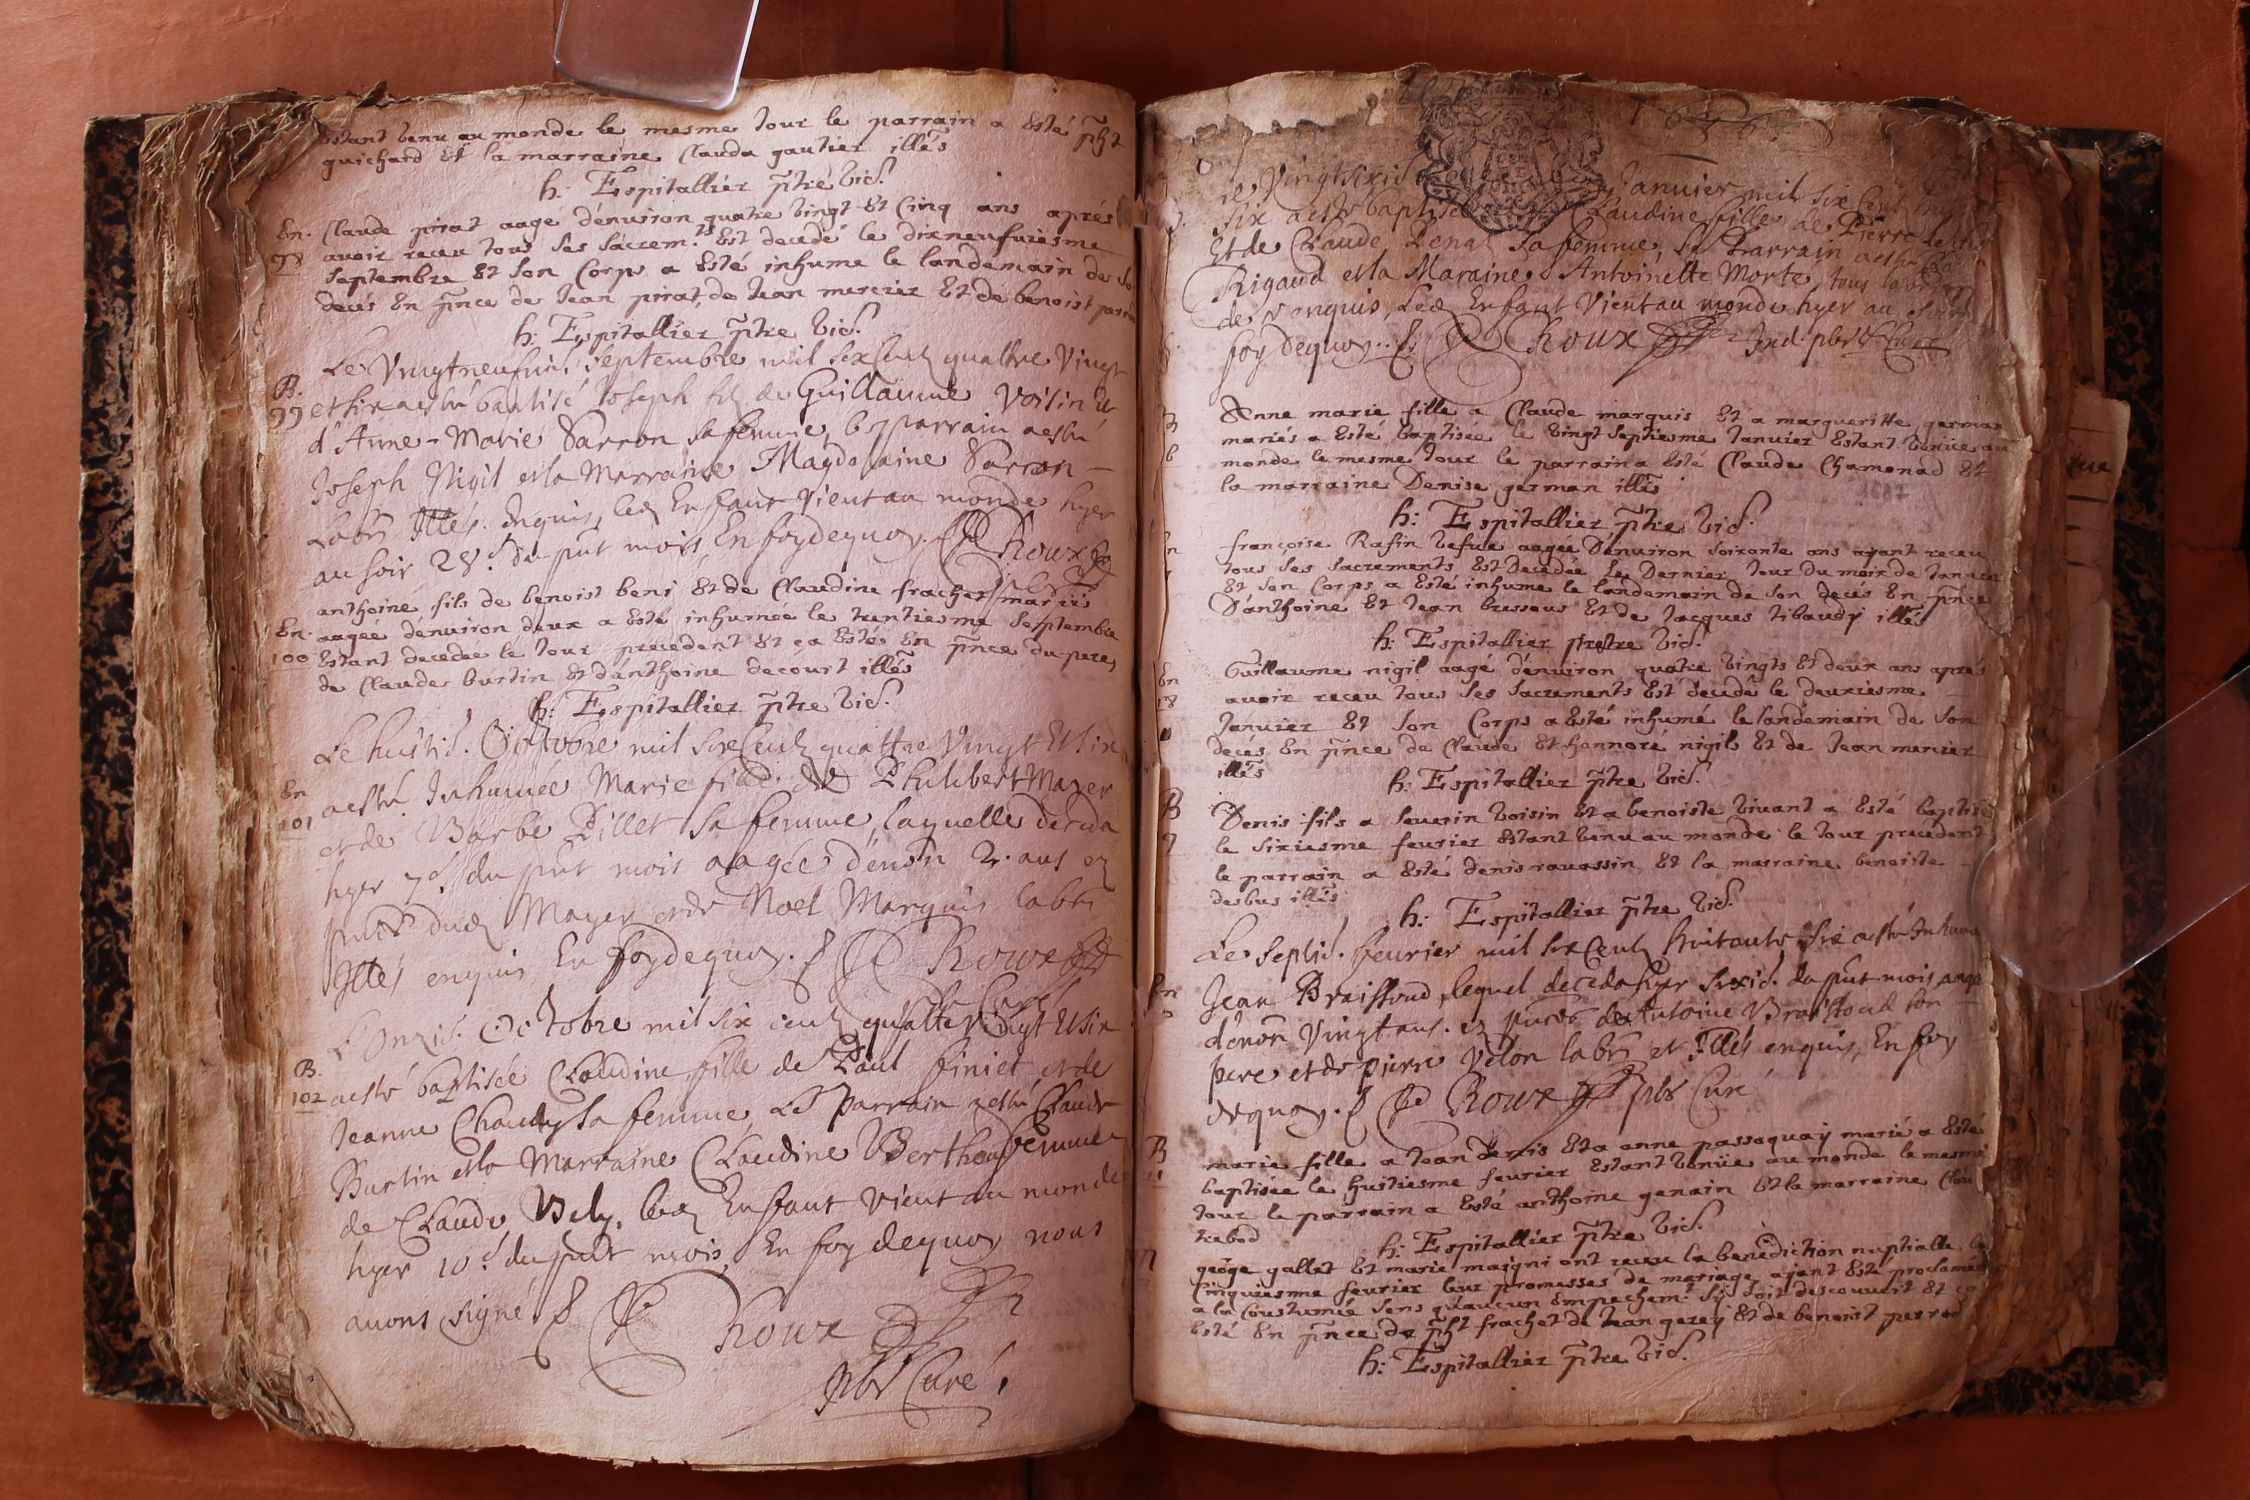 Estant venu au monde le mesme Jour le parrain a Esté pht
guichard Et la marraine Clauda gautier illés
h: Espitallier ptre vic.
En. Claude pirat aagé d'enuiron quatre vingt Et Cinq ans aprés
98 auoir receu tous ses sacrem.ts Est decedé le dixneufuiesme
Septembre Et son Corps a Esté inhume le landemain de so
decés En pnce de Jean pirat, de Jean mercier Et de benoist
h: Espitallier ptre vic.
Le Vingtneufuie. Septembre mil six Centz quattre Vingt
B.
99 et six a esté baptisé Joseph filz de Guillaume Voisin et
d'Anne-Marie Sarron sa femme, le parrain a esté
Joseph Nigil et la Marraine Magdalaine Sarron
Labrs Illés. enquis, led Enfant Vient au monde hyer
au soir 28.e du pnt mois, En foy de quoy. Roux
pbr Curé
anthoine fils de benoist beni Et de Claudine frachet mariés
En. aagée d'enuiron deux a Esté inhumée le trentiesme Septembre
100 Estant decedée le Jour precedent Et ç'a Esté En pnce du pere,
de Claude burtin Et d'anthoine decourt illés
h: Espitallier ptre vic.
Le huitie. Octobre mil six Centz quattre Vingt Et six
En
101 a esté Inhumée Marie fille de Philibert Mayer
et de Barbe Pillet sa femme, laquelle deceda
hyer 7.e du pnt mois aagée d'enon 2. ans ez
pnces dud Mayer et de Noel Marquis labrs
Illés enquis En foy de quoy. Roux
pbr Curé
L'Onzie. Octobre mil six centz quatte Vingt Et six
B.
102 a esté baptisée Claudine fille de Paul finiet et de
Jeanne Chandy sa femme, Le Parrain a esté Claude
Burtin et la Marraine Claudine Berthoud femme
de Claude Bely, led Enfant Vient au monde
hyer 10.e du pnt mois, En foy de quoy nous
auons signé Roux
pbr Curé.
Le Vingtsixie Januier mil six Cent
six a esté baptisée Claudine fille de Pierre
Et de Claude Penat sa femme, Le Parrain a esté
Rigaud et la Maraine Antoinette Morte, tous
de enquis, Led Enfant Vient au monde hyer au soir
foy de quoy. Roux Ind. pbr Curé
B Anne marie fille a Claude marquis Et a margueritte german
6 mariés a Esté baptisée le vingt Septiesme Januier Estant venüe au
monde le mesme Jour le parrain a Esté Claude Chamonad Et
la marraine Denise german illés
h: Espitallier ptre vic.
En françoise Rafin vefue aagée D'enuiron soixante ans ayant receu
tous ses sacrements Est Decedée Le Dernier Jour Du mois de Januier
Et son Corps a Esté inhume le landemain de son decés En pnce
D'anthoine Et Jean bressous Et de Jacques tibaudy illés
h: Espitallier prestre vic.
En Guillaume nigil aagé d'enuiron quatre vingts Et deux ans aprés
18 auoir receu tous ses sacrements Est decedé le deuxiesme
Januier Et son Corps a Esté inhumé le landemain de son
decés En pnce de Claude Et honnoré nigil Et de Jean mercier
illés
h: Espitallier ptre vic.
B Denis fils a seuerin voisin Et a benoiste viuant a Esté baptisé
9 le sixiesme feurier Estant venu au monde le Jour precedent
le parrain a Esté denis rauassin Et la marraine benoiste
desbus illés
h: Espitallier ptre vic.
Le Septie. feurier mil six Centz huitante six a esté Inhumé
En Jean Braissoud, lequel deceda hyer sixie. du pnt mois aagé
d'enon Vingt ans. ez pnces de Antoine Braissoud son
pere et de Pierre Velon labrs et Illés enquis, En foy
de quoy. Roux pbr Curé
B marie fille a Jean Denis Et a anne passaquay mariés a Esté
baptisée le huitiesme feurier Estant venüe au monde le mesme
Jour le parrain a Esté anthoine genain Et la marraine
trebod
h: Espitallier ptre vic.
george gallet Et marie maigni ont receu la benediction nuptialle le
Cinquiesme feurier leur promesses de mariage ajant Esté proclamées
a la Coustumée sens qu'aucun Empechem.t s'y soit descouuert Et ça
Esté En pnce de pht frachet de Jean gerey Et de benoist perrod
h: Espitallier ptre vic.